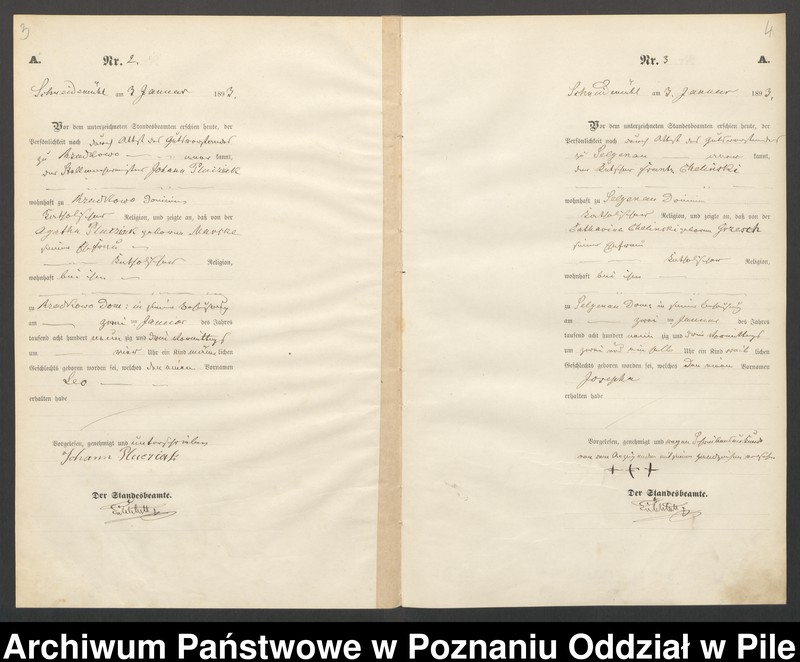 3
A.
Nr. 2.
Schneidemühl am 3 Januar 1893.
Vor dem unterzeichneten Standesbeamten erschien heute, der
Persönlichkeit nach durch Attest des Gutsvorstandes
zu kannt,
der Johann
wohnhaft zu Dominium
Katholischer Religion, und zeigte an, daß von der
Agatha geborene
seiner Ehefrau
Katholischer Religion,
wohnhaft bei ihm
zu Dom: in seiner Behausung
am zwei ten Januar des Jahres
tausend acht hundert neun zig und drei Vormittags
um vier Uhr ein Kind männ lichen
Geschlechts geboren worden sei, welches den einen Vornamen
Leo
erhalten habe
Vorgelesen, genehmigt und unterschrieben
Johann
Der Standesbeamte.
4
Nr. 3
A.
Schneidemühl am 3. Januar 1893.
Vor dem unterzeichneten Standesbeamten erschien heute, der
Persönlichkeit nach durch Attest des Gutsvorstandes
zu Selgenau kannt,
der Kutscher Frantz Chelinski
wohnhaft zu Selgenau Domin
Katholischer Religion, und zeigte an, daß von der
Katharina Chelinski geborene
seiner Ehefrau
Katholischer Religion,
wohnhaft bei ihm
zu Selgenau Dom: in seiner Behausung
am zwei ten Januar des Jahres
tausend acht hundert neun zig und drei Vormittags
um zwei und ein halb Uhr ein Kind weib lichen
Geschlechts geboren worden sei, welches den einen Vornamen
Josepha
erhalten habe
Vorgelesen, genehmigt und wegen Schreibensunkunde
von dem Anzeigenden mit seinem Handzeichen versehen
+++
Der Standesbeamte.
Archiwum Państwowe w Poznaniu Oddział w Pile